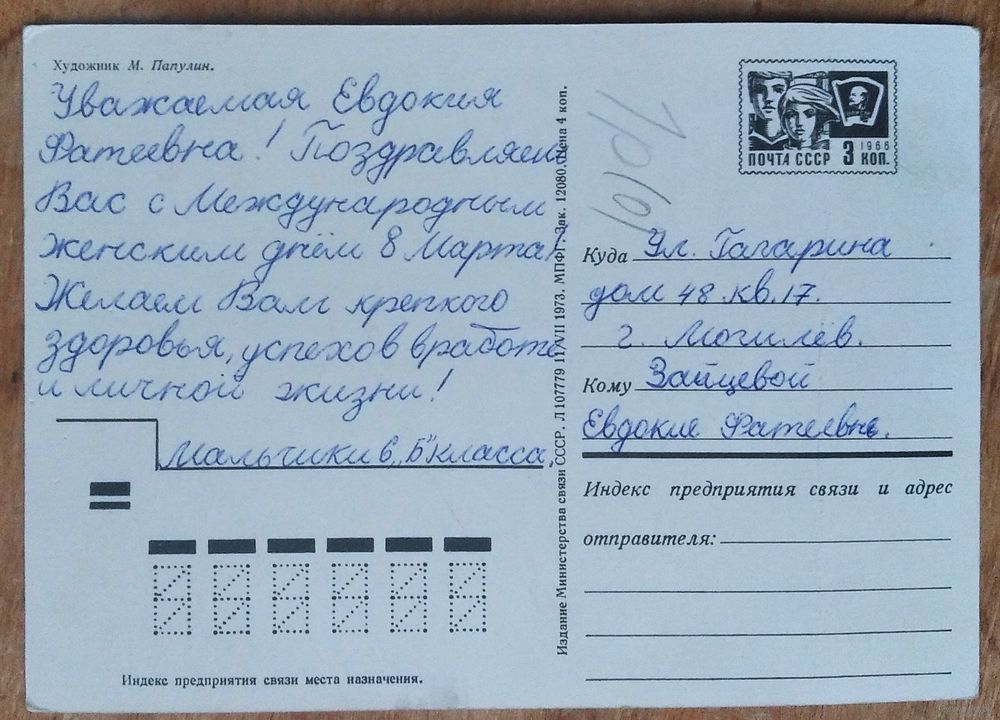 Художник М. Папулин.
Уважаемая Евдокия
Фатеевна! Поздравляем
Вас с Международным
женским днём 8 Марта!
Желаем Вам крепкого
здоровья, успехов в работе
и личной жизни!
Мальчики 6 „Б" класса.
Индекс предприятия связи места назначения.
Издание Министерства связи СССР. Л 107779 11/VII 1973. МПФГ. Зак. 12080. Цена 4 коп.
1р
ПОЧТА СССР 3 КОП.
1966
Куда Ул. Гагарина
дом 48 кв. 17.
г. Могилёв.
Кому Зайцевой
Евдокие Фатеевне.
Индекс предприятия связи и адрес
отправителя: